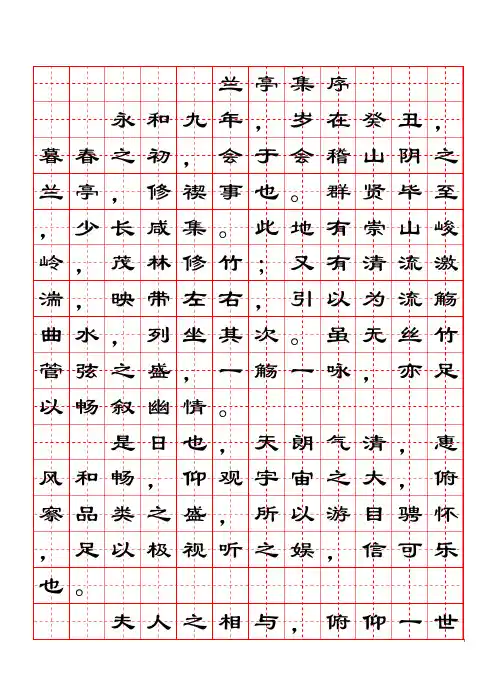 兰亭集序
永和九年，岁在癸丑，
暮春之初，会于会稽山阴之
兰亭，修禊事也。群贤毕至
，少长咸集。此地有崇山峻
岭，茂林修竹；又有清流激
湍，映带左右，引以为流觞
曲水，列坐其次。虽无丝竹
管弦之盛，一觞一咏，亦足
以畅叙幽情。
是日也，天朗气清，惠
风和畅，仰观宇宙之大，俯
察品类之盛，所以游目骋怀
，足以极视听之娱，信可乐
也。
夫人之相与，俯仰一世